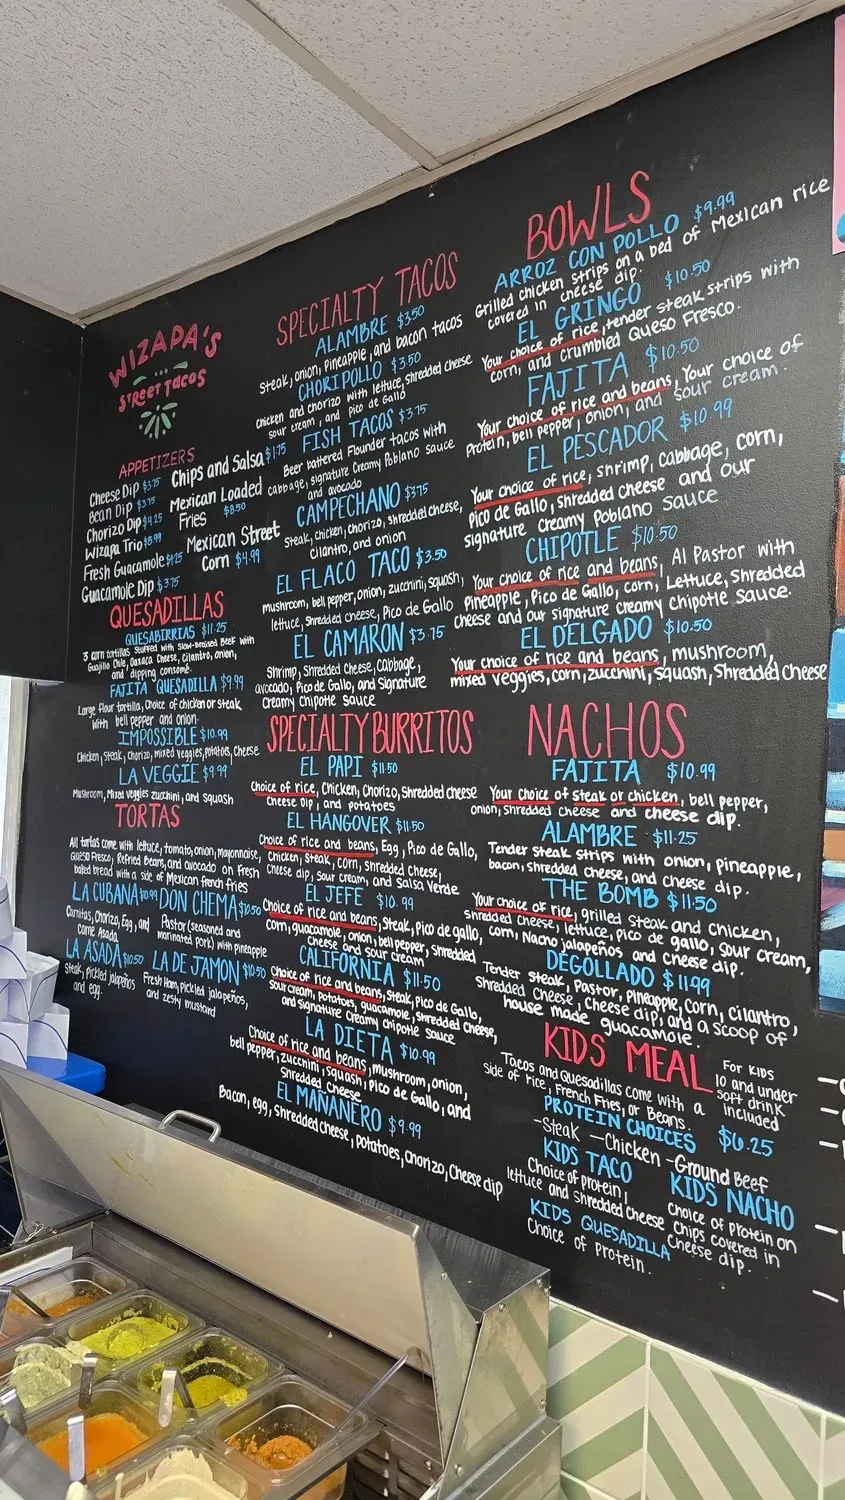 WIZAPA'S
STREET TACOS
APPETIZERS
Cheese Dip $3.75
Bean Dip $3.75
Chorizo Dip $4.25
Wizapa Trio
Fresh Guacamole
Guacamole Dip $3.75
Chips and Salsa $1.75
Mexican Loaded
Fries $8.50
Mexican Street
Corn $4.99
QUESADILLAS
QUESABIRRIAS $11.25
3 corn tortillas stuffed with slow-braised Beef with
Guajillo Chile, Oaxaca Cheese, cilantro, onion,
and dipping consomé.
FAJITA QUESADILLA $9.99
Large flour tortilla, Choice of chicken or steak
with bell pepper and onion.
IMPOSSIBLE $10.99
Chicken, Steak, Chorizo, mixed veggies, potatoes, Cheese
LA VEGGIE $9.99
Mushroom, Mixed veggies zucchini, and squash
TORTAS
All tortas come with lettuce, tomato, onion, mayonnaise,
Queso Fresco, Refried Beans, and avocado on Fresh
baked bread with a side of Mexican french fries
LA CUBANA $10.99
Carnitas, Chorizo, Egg, and
Carne Asada
DON CHEMA $10.50
Pastor (seasoned and
marinated pork) with pineapple
LA ASADA $10.50
steak, pickled jalapeños
and egg.
LA DE JAMON $10.50
Fresh Ham, pickled jalapeños,
and zesty mustard
SPECIALTY TACOS
ALAMBRE $3.50
Steak, onion, Pineapple, and bacon tacos
CHORIPOLLO $3.50
Chicken and chorizo with lettuce, shredded cheese
sour cream, and pico de Gallo
FISH TACOS $3.75
Beer battered Flounder tacos with
cabbage, signature Creamy Poblano sauce
and avocado
CAMPECHANO $3.75
Steak, chicken, chorizo, shredded cheese,
Cilantro, and onion
EL FLACO TACO $3.50
mushroom, bell pepper, onion, zucchini, squash,
lettuce, Shredded cheese, Pico de Gallo
EL CAMARON $3.75
Shrimp, Shredded Cheese, Cabbage,
avocado, Pico de Gallo, and Signature
Creamy Chipotle Sauce
SPECIALTY BURRITOS
EL PAPI $11.50
Choice of rice, Chicken, Chorizo, Shredded cheese
Cheese Dip, and potatoes
EL HANGOVER $11.50
Choice of rice and beans, Egg, Pico de Gallo,
Chicken, steak, corn, shredded cheese,
Cheese dip, sour cream, and Salsa Verde
EL JEFE $10.99
Choice of rice and beans, Steak, pico de gallo,
corn, guacamole, onion, bell pepper, Shredded
Cheese and sour cream
CALIFORNIA $11.50
Choice of rice and beans, steak, Pico de Gallo,
sour cream, potatoes, guacamole, shredded Cheese,
and signature Creamy chipotle sauce
LA DIETA $10.99
Choice of rice and beans, mushroom, onion,
bell pepper, zucchini, squash, Pico de Gallo, and
Shredded Cheese
EL MAÑANERO $9.99
Bacon, egg, shredded cheese, potatoes, chorizo, Cheese dip
BOWLS
ARROZ CON POLLO $9.99
Grilled chicken strips on a bed of Mexican rice
covered in cheese dip.
EL GRINGO $10.50
Your choice of rice, tender steak strips with
corn, and crumbled Queso Fresco.
FAJITA $10.50
Your choice of rice and beans, Your choice of
Protein, bell pepper, onion, and sour cream.
EL PESCADOR $10.99
Your choice of rice, shrimp, cabbage, corn,
pico de Gallo, shredded cheese and our
signature creamy poblano sauce
CHIPOTLE $10.50
Your choice of rice and beans, Al Pastor with
Pineapple, Pico de Gallo, corn, Lettuce, Shredded
cheese and our signature creamy chipotle sauce.
EL DELGADO $10.50
Your choice of rice and beans, mushroom,
mixed veggies, corn, zucchini, squash, Shredded Cheese
NACHOS
FAJITA $10.99
Your choice of steak or chicken, bell pepper,
onion, shredded cheese and cheese dip.
ALAMBRE $11.25
Tender steak strips with onion, pineapple,
bacon, shredded cheese, and cheese dip.
THE BOMB $11.50
Your choice of rice, grilled steak and chicken,
shredded cheese, lettuce, pico de gallo, sour cream,
corn, Nacho jalapeños and cheese dip.
DEGOLLADO $11.99
Tender steak, Pastor, pineapple, corn, cilantro,
Shredded Cheese, Cheese dip, and a scoop of
house made guacamole.
KIDS MEAL
For kids
10 and under
soft drink
included
Tacos and Quesadillas come with a
side of rice, French Fries, or Beans.
PROTEIN CHOICES $6.25
-Steak -Chicken -Ground Beef
KIDS TACO
Choice of protein,
lettuce and Shredded Cheese
KIDS NACHO
Choice of Protein on
Chips covered in
Cheese dip.
KIDS QUESADILLA
Choice of Protein.